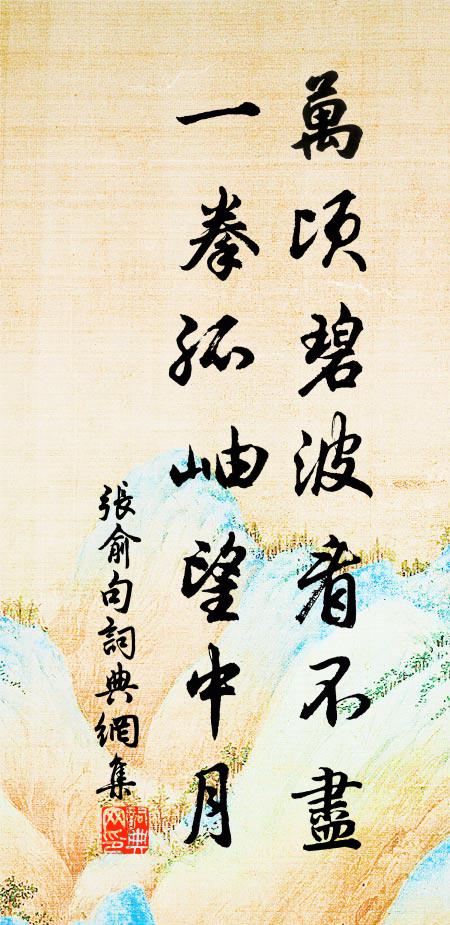 萬頃碧波看不盡
一拳孤岫望中月
張俞句詞典網集
詞典
网印